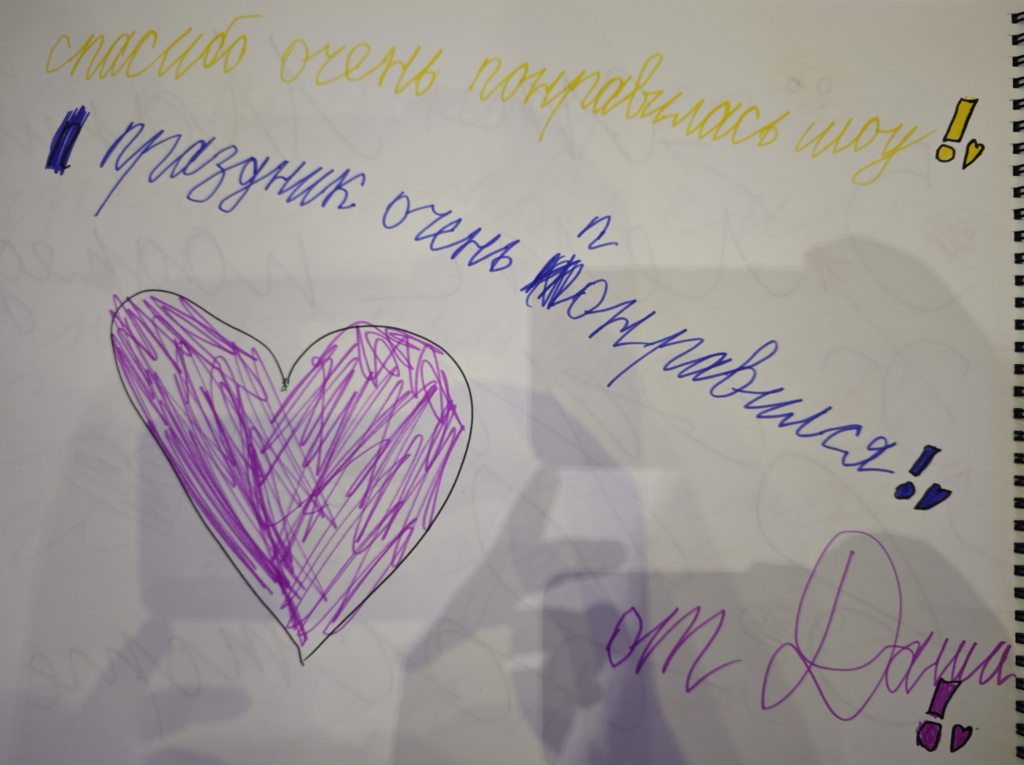 спасибо очень понравилась шоу!
праздник очень понравился!
от Даша!